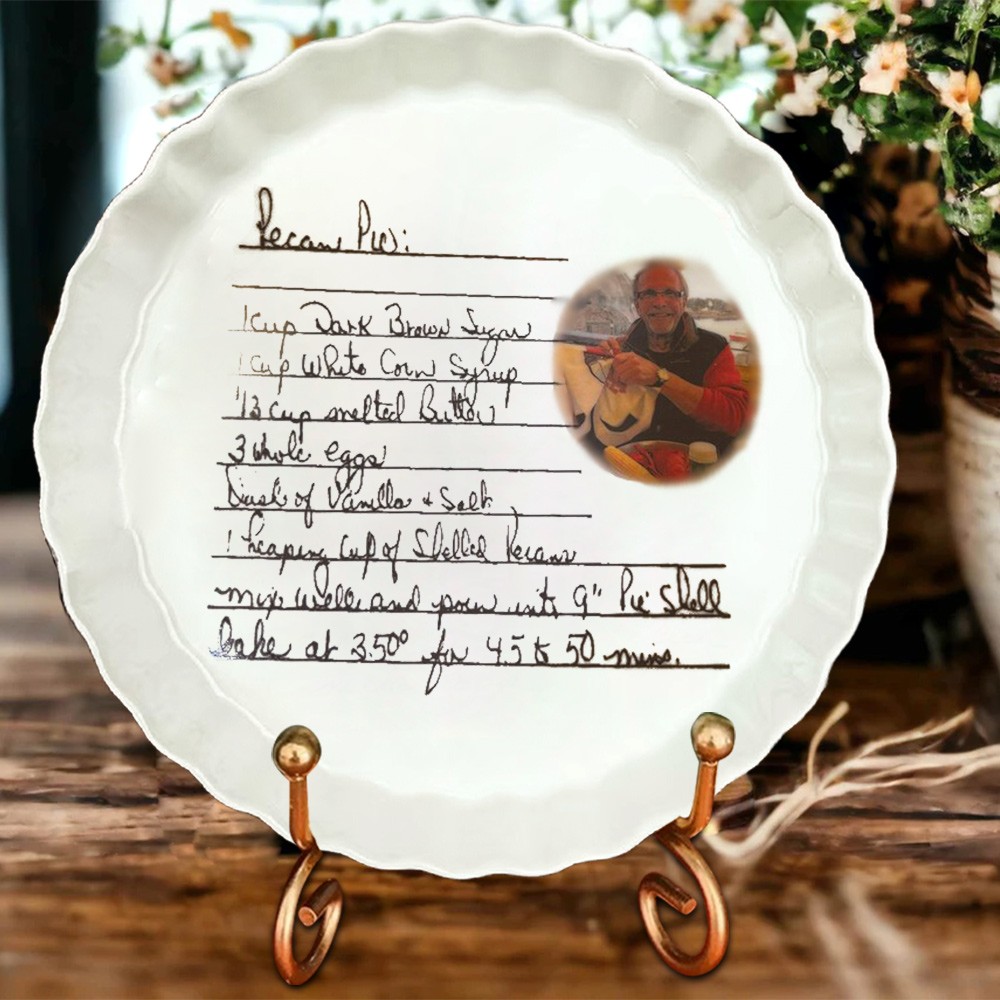 Pecan Pie:
1 cup Dark Brown Sugar
1 cup White Corn Syrup
1/3 cup melted Butter
3 whole eggs
Dash of Vanilla + Salt
1 heaping cup of Shelled Pecans
mix well and pour into 9" Pie Shell
bake at 350° for 45 to 50 mins.